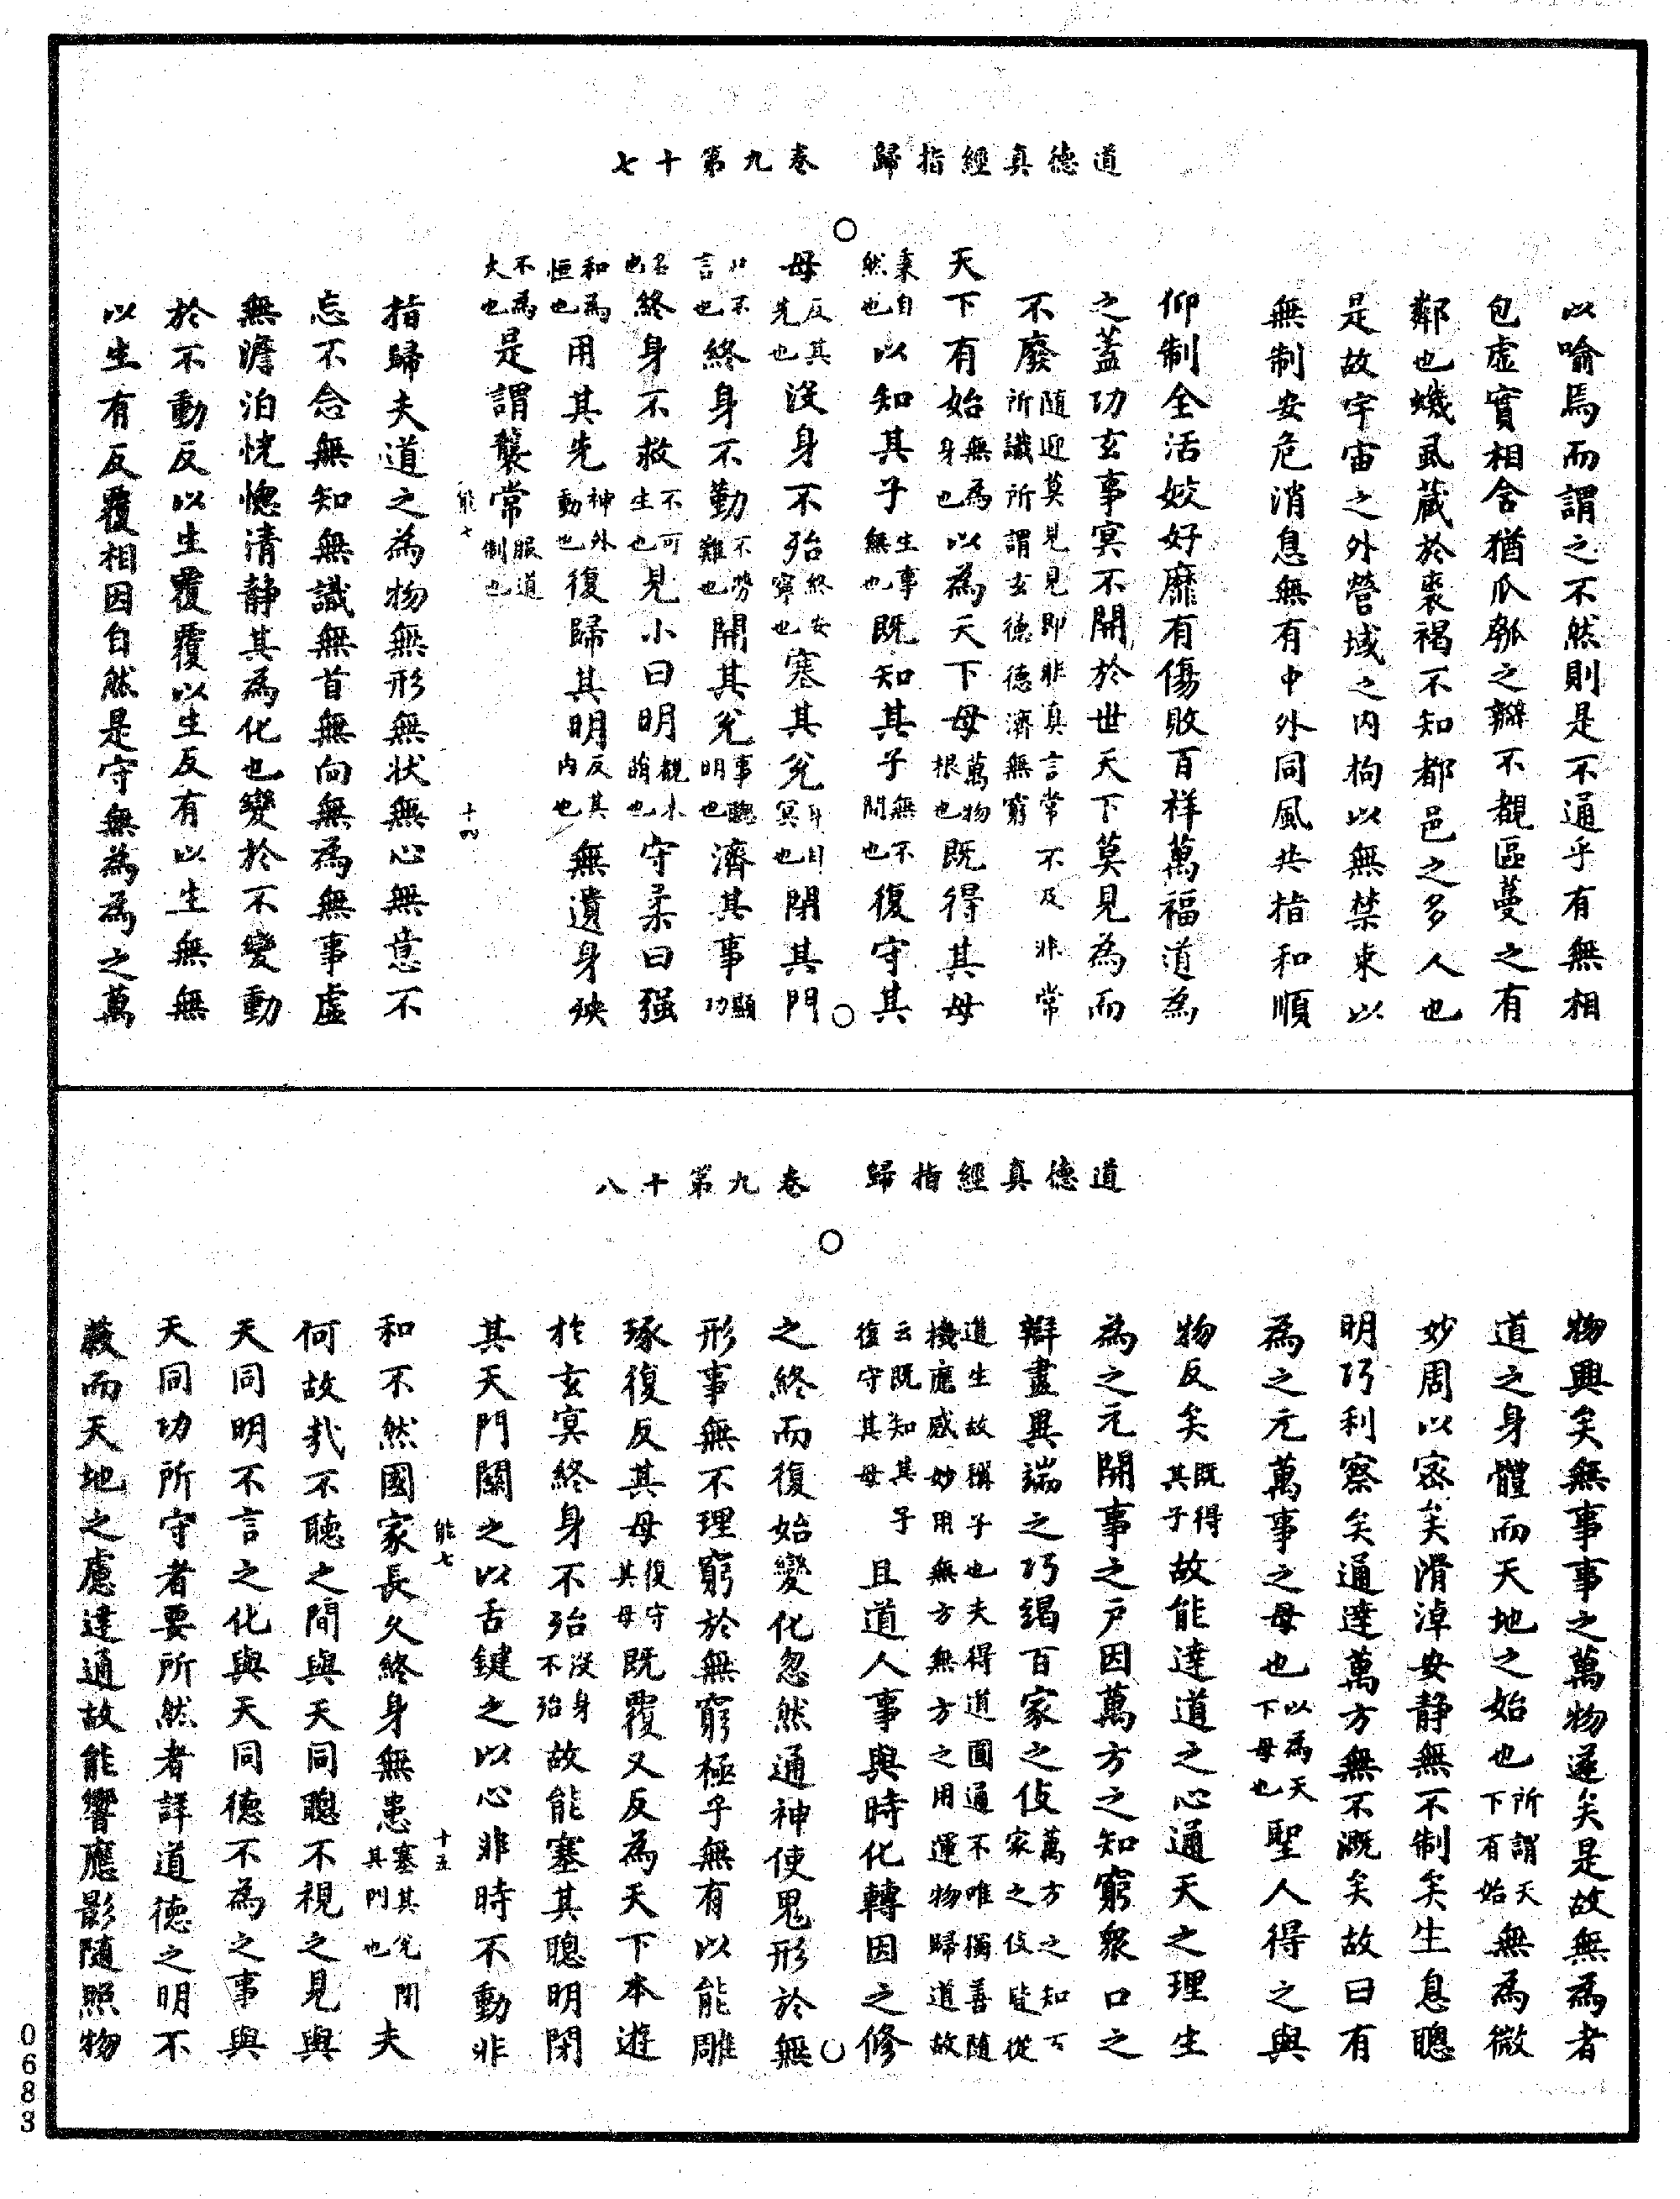 道德真經指歸　卷九第十七
以喻焉而謂之不然則是不通乎有無相
包虛實相含猶瓜瓠之瓣不覩區蔓之有
鄰也蟣虱藏於裘褐不知都邑之多人也
是故宇宙之外營域之內拘以無禁束以
無制安危消息無有中外同風共指和順
仰制全活姣好靡有傷敗百祥萬福道為
之蓋功玄事冥不開於世天下莫見為而
不廢隨迎莫見見即非真言常不及非常所識所謂玄德德濟無窮
天下有始無為身也以為天下母萬物根也既得其母
秉自然也以知其子生事無也既知其子無不間也復守其
母反其先也沒身不殆終安寧也塞其兌耳目冥也閉其門
口不言也終身不勤不勞難也開其兌事聰明也濟其事顯功
名也終身不救不可生也見小曰明觀未萌也守柔曰強
和為恒也用其先神外動也復歸其明反其內也無遺身殃
不為大也是謂襲常服道制也
能七　十四
指歸夫道之為物無形無狀無心無意不
忘不念無知無識無首無向無為無事虛
無澹泊恍惚清靜其為化也變於不變動
於不動反以生覆覆以生反有以生無無
以生有反覆相因自然是守無為為之萬
道德真經指歸　卷九第十八
物興矣無事事之萬物遂矣是故無為者
道之身體而天地之始也所謂天下有始無為微
妙周以密矣滑淖安靜無不制矣生息聰
明巧利察矣通達萬方無不溉矣故曰有
為之元萬事之母也以為天下母也聖人得之與
物反矣既得其子故能達道之心通天之理生
為之元開事之戶因萬方之知窮衆口之
辯盡異端之巧竭百家之伎萬方之知百家之伎皆從
道生故稱子也夫得道圓通不唯獨善隨機應感妙用無方無方之用運物歸道故
云既知其子復守其母且道人事與時化轉因之修
之終而復始變化忽然通神使鬼形於無
形事無不理窮於無窮極乎無有以能雕
琢復反其母復守其母既覆又反為天下本遊
於玄冥終身不殆沒身不殆故能塞其聰明閉
其天門關之以舌鍵之以心非時不動非
和不然國家長久終身無患塞其兌閉其門也夫
能七　十五
何故哉不聽之聞與天同聰不視之見與
天同明不言之化與天同德不為之事與
天同功所守者要所然者詳道德之明不
蔽而天地之慮達通故能響應影隨照物
0683